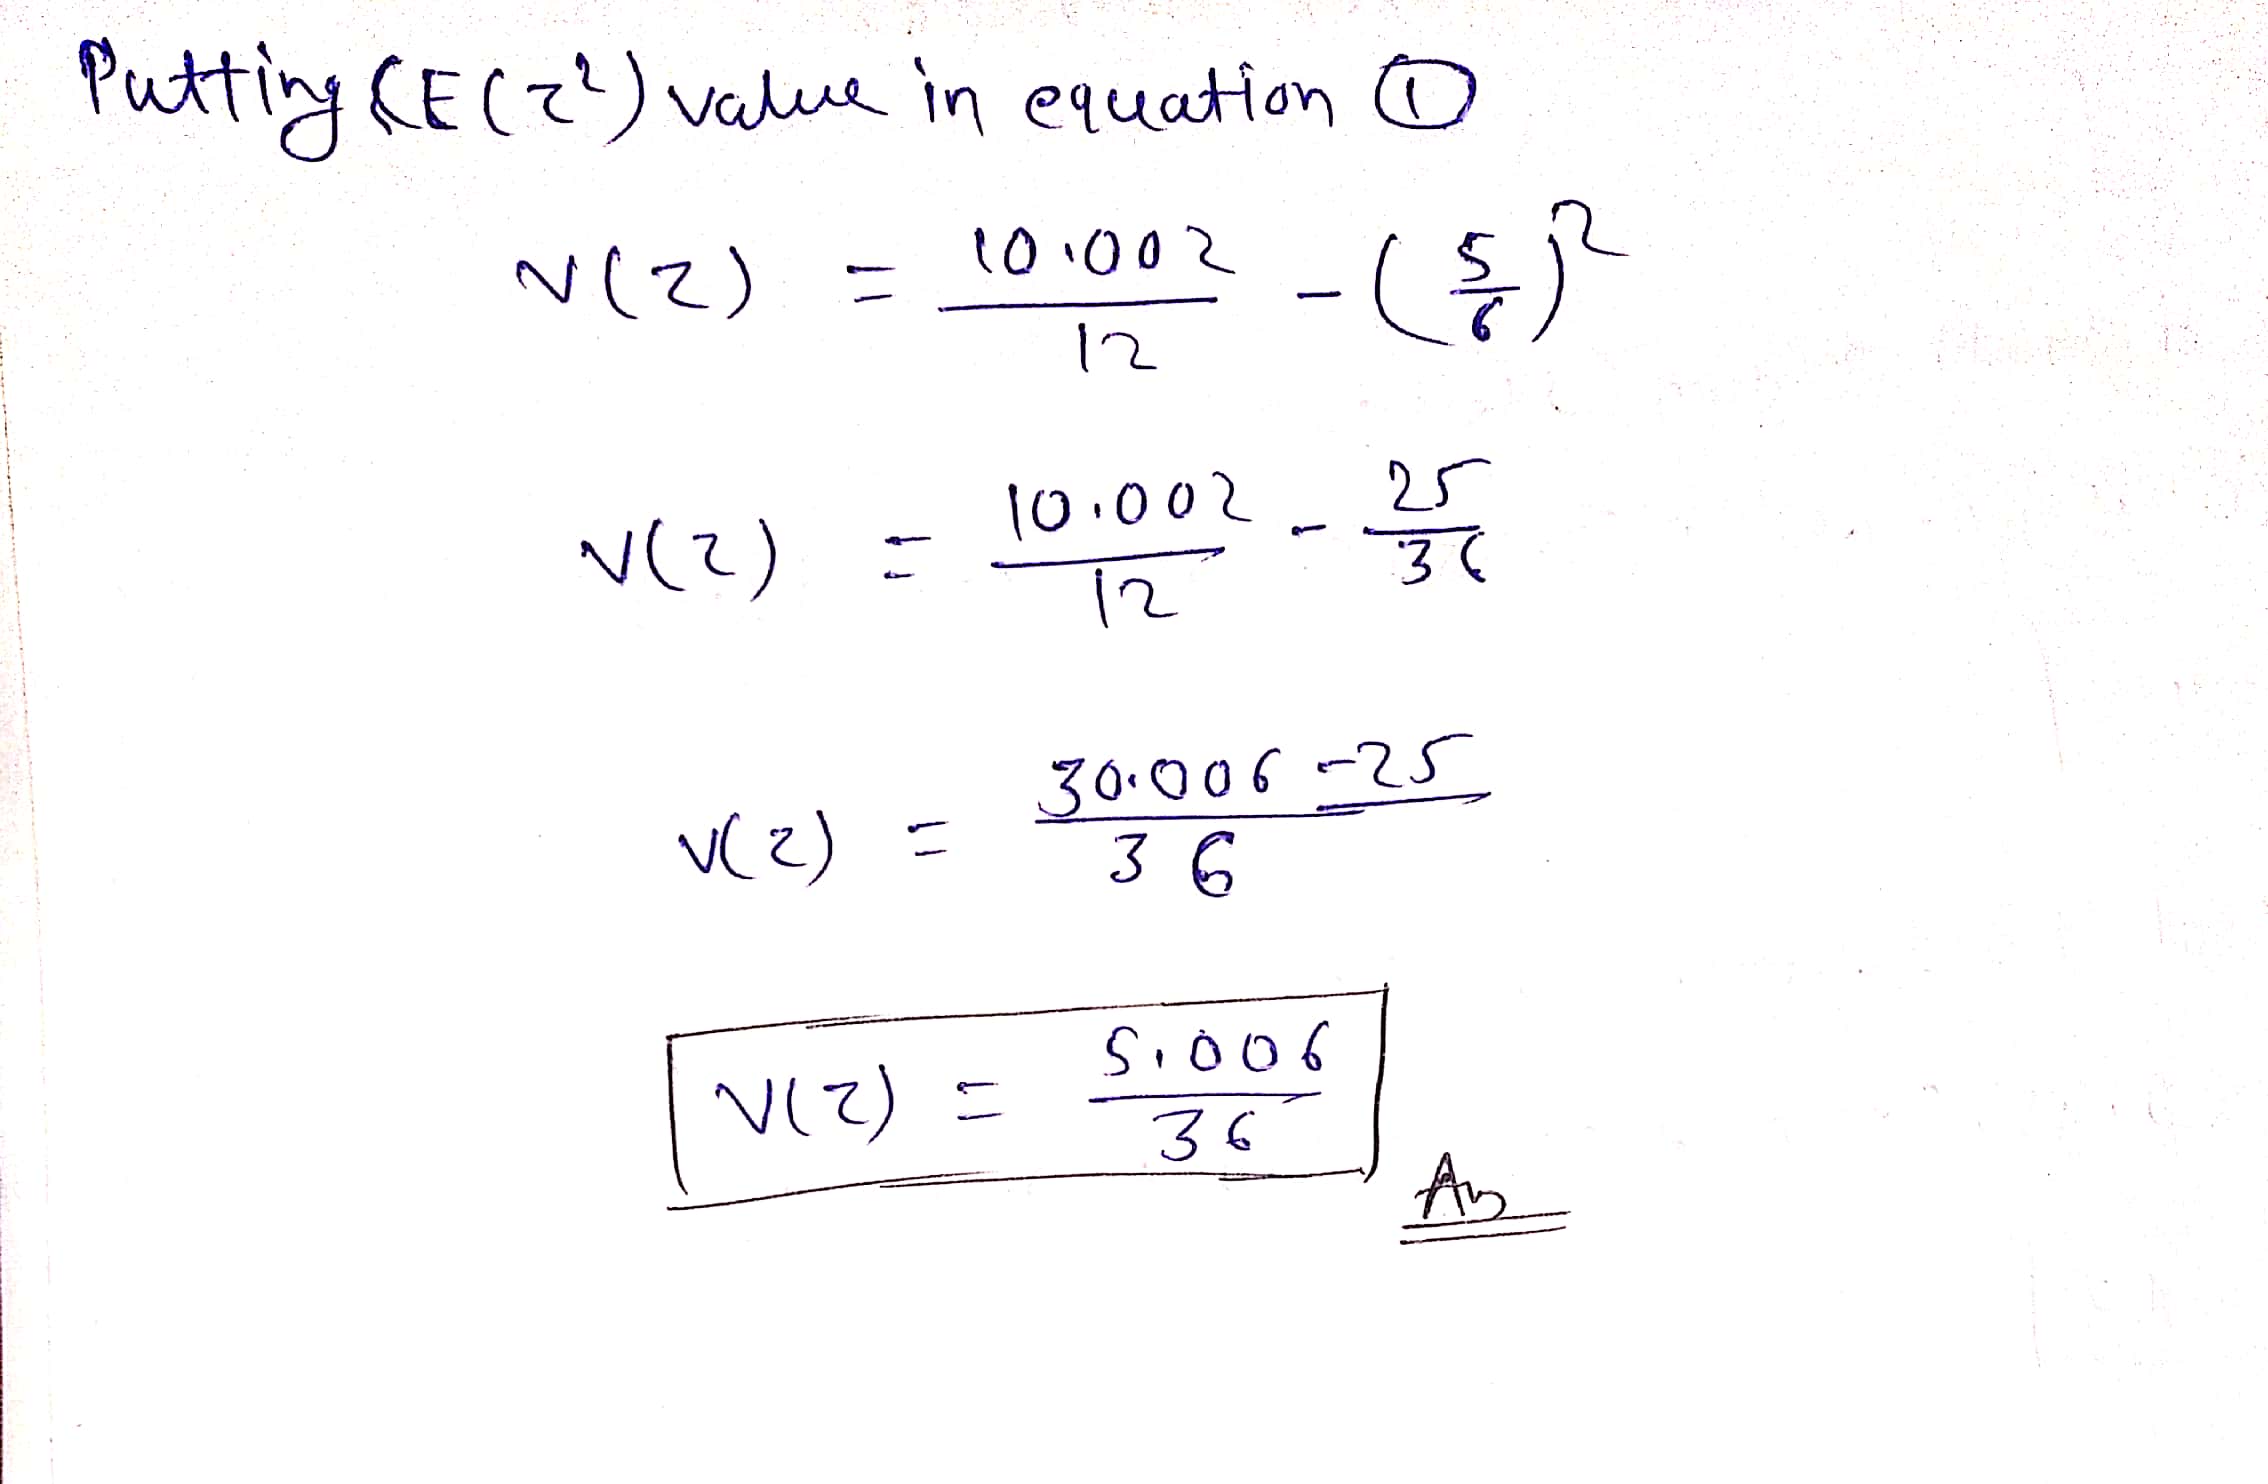 Putting (E(z²) value in equation ①
V(z) = 10.002/12 - (5/6)²
V(z) = 10.002/12 - 25/36
V(z) = 30.006-25/36
V(z) = 5.006/36
Ans